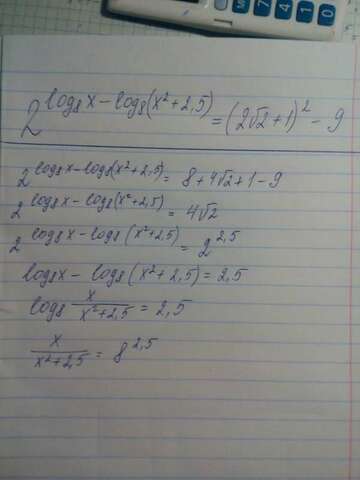 2^(log₈x − log₈(x²+2,5)) = (2√2+1)² − 9
2^(log₈x − log₈(x²+2,5)) = 8+4√2+1−9
2^(log₈x − log₈(x²+2,5)) = 4√2
2^(log₈x − log₈(x²+2,5)) = 2^2,5
log₈x − log₈(x²+2,5) = 2,5
log₈ x/(x²+2,5) = 2,5
x/(x²+2,5) = 8^2,5